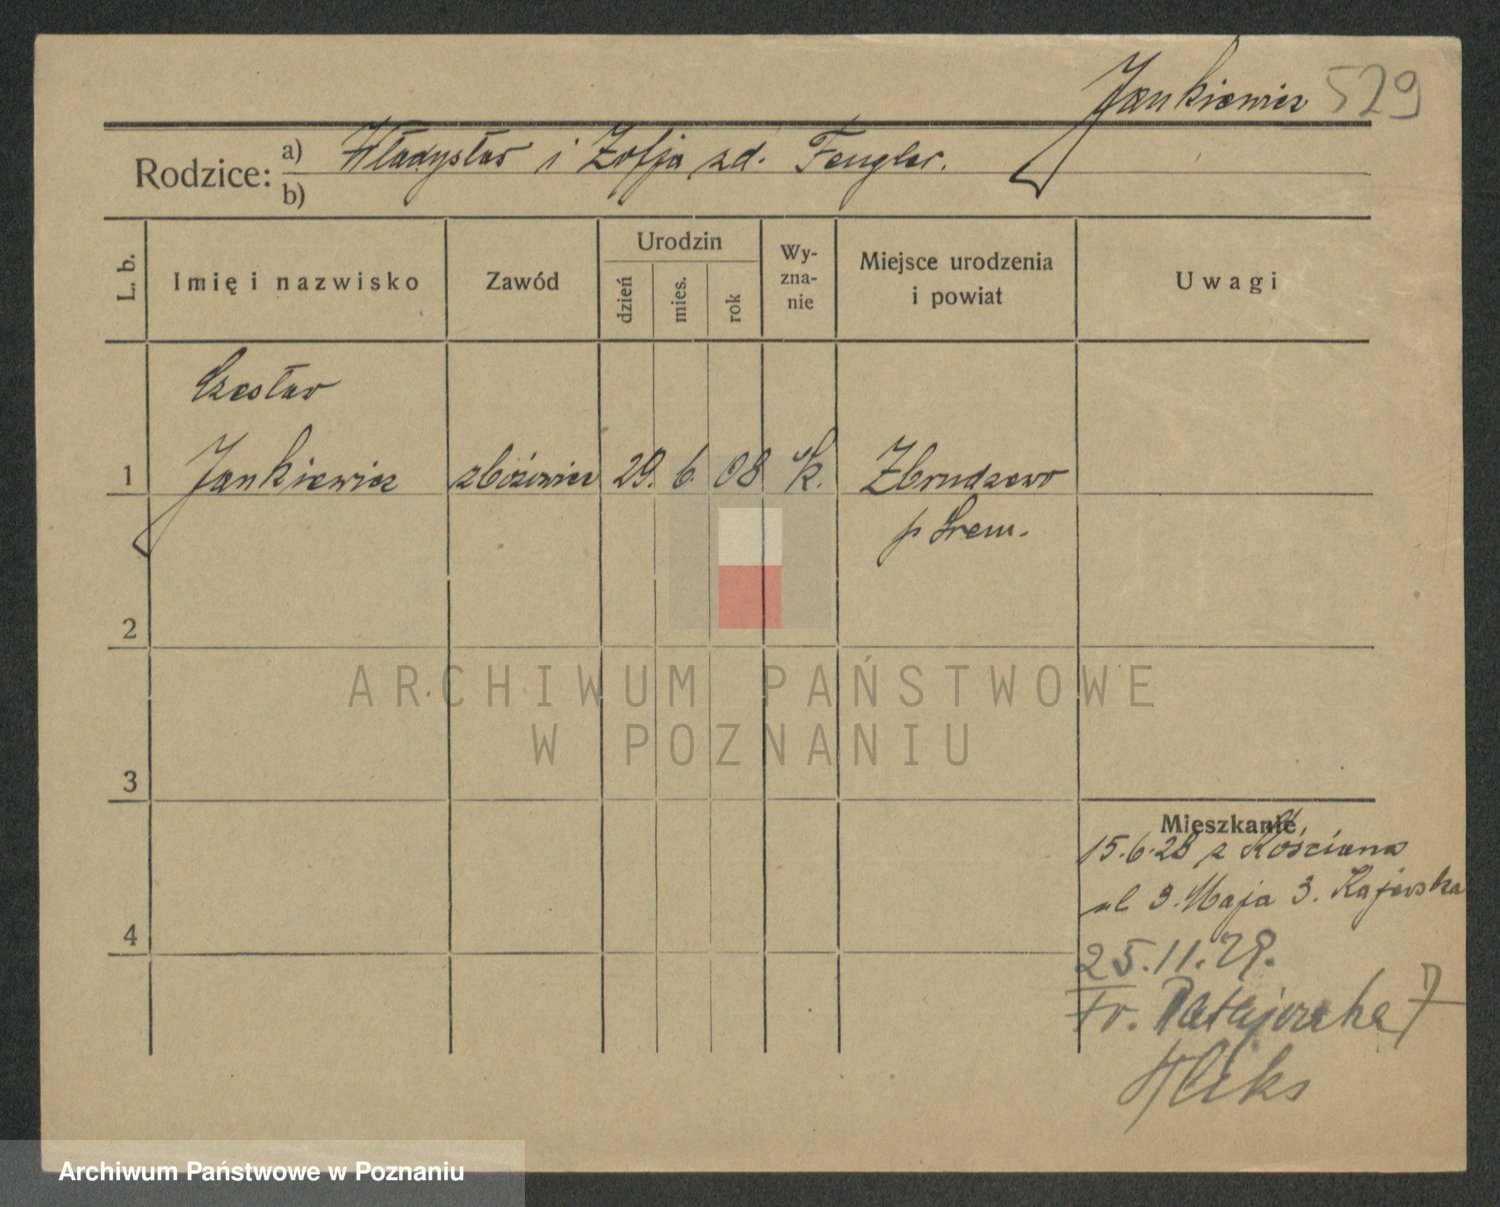 Jankiewicz 529
Rodzice: a) Władysław i Zofja zd. Fengler.
b)
L. b.
Imię i nazwisko
Zawód
Urodzin
dzień
mies.
rok
Wy-
zna-
nie
Miejsce urodzenia
i powiat
Uwagi
Czesław
1 Jankiewicz zbożowiec 29. 6. 08 rk. Zbrudzewo
p Śrem.
2
3
4
Mieszkanie
15.6.28 z Kościana
ul 3. Maja 3. Kajewska
25.11.29.
Fr. Ratajczaka 7
ARCHIWUM PAŃSTWOWE
W POZNANIU
Archiwum Państwowe w Poznaniu